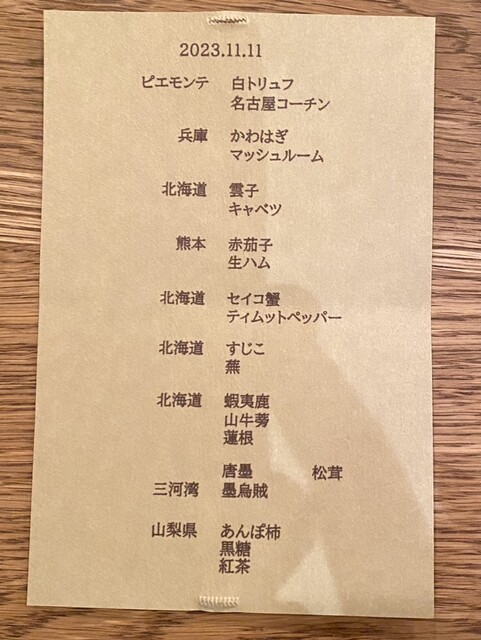 2023.11.11
ピエモンテ 白トリュフ
名古屋コーチン
兵庫 かわはぎ
マッシュルーム
北海道 雲子
キャベツ
熊本 赤茄子
生ハム
北海道 セイコ蟹
ティムットペッパー
北海道 すじこ
蕪
北海道 蝦夷鹿
山牛蒡
蓮根
唐墨 松茸
三河湾 墨烏賊
山梨県 あんぽ柿
黒糖
紅茶